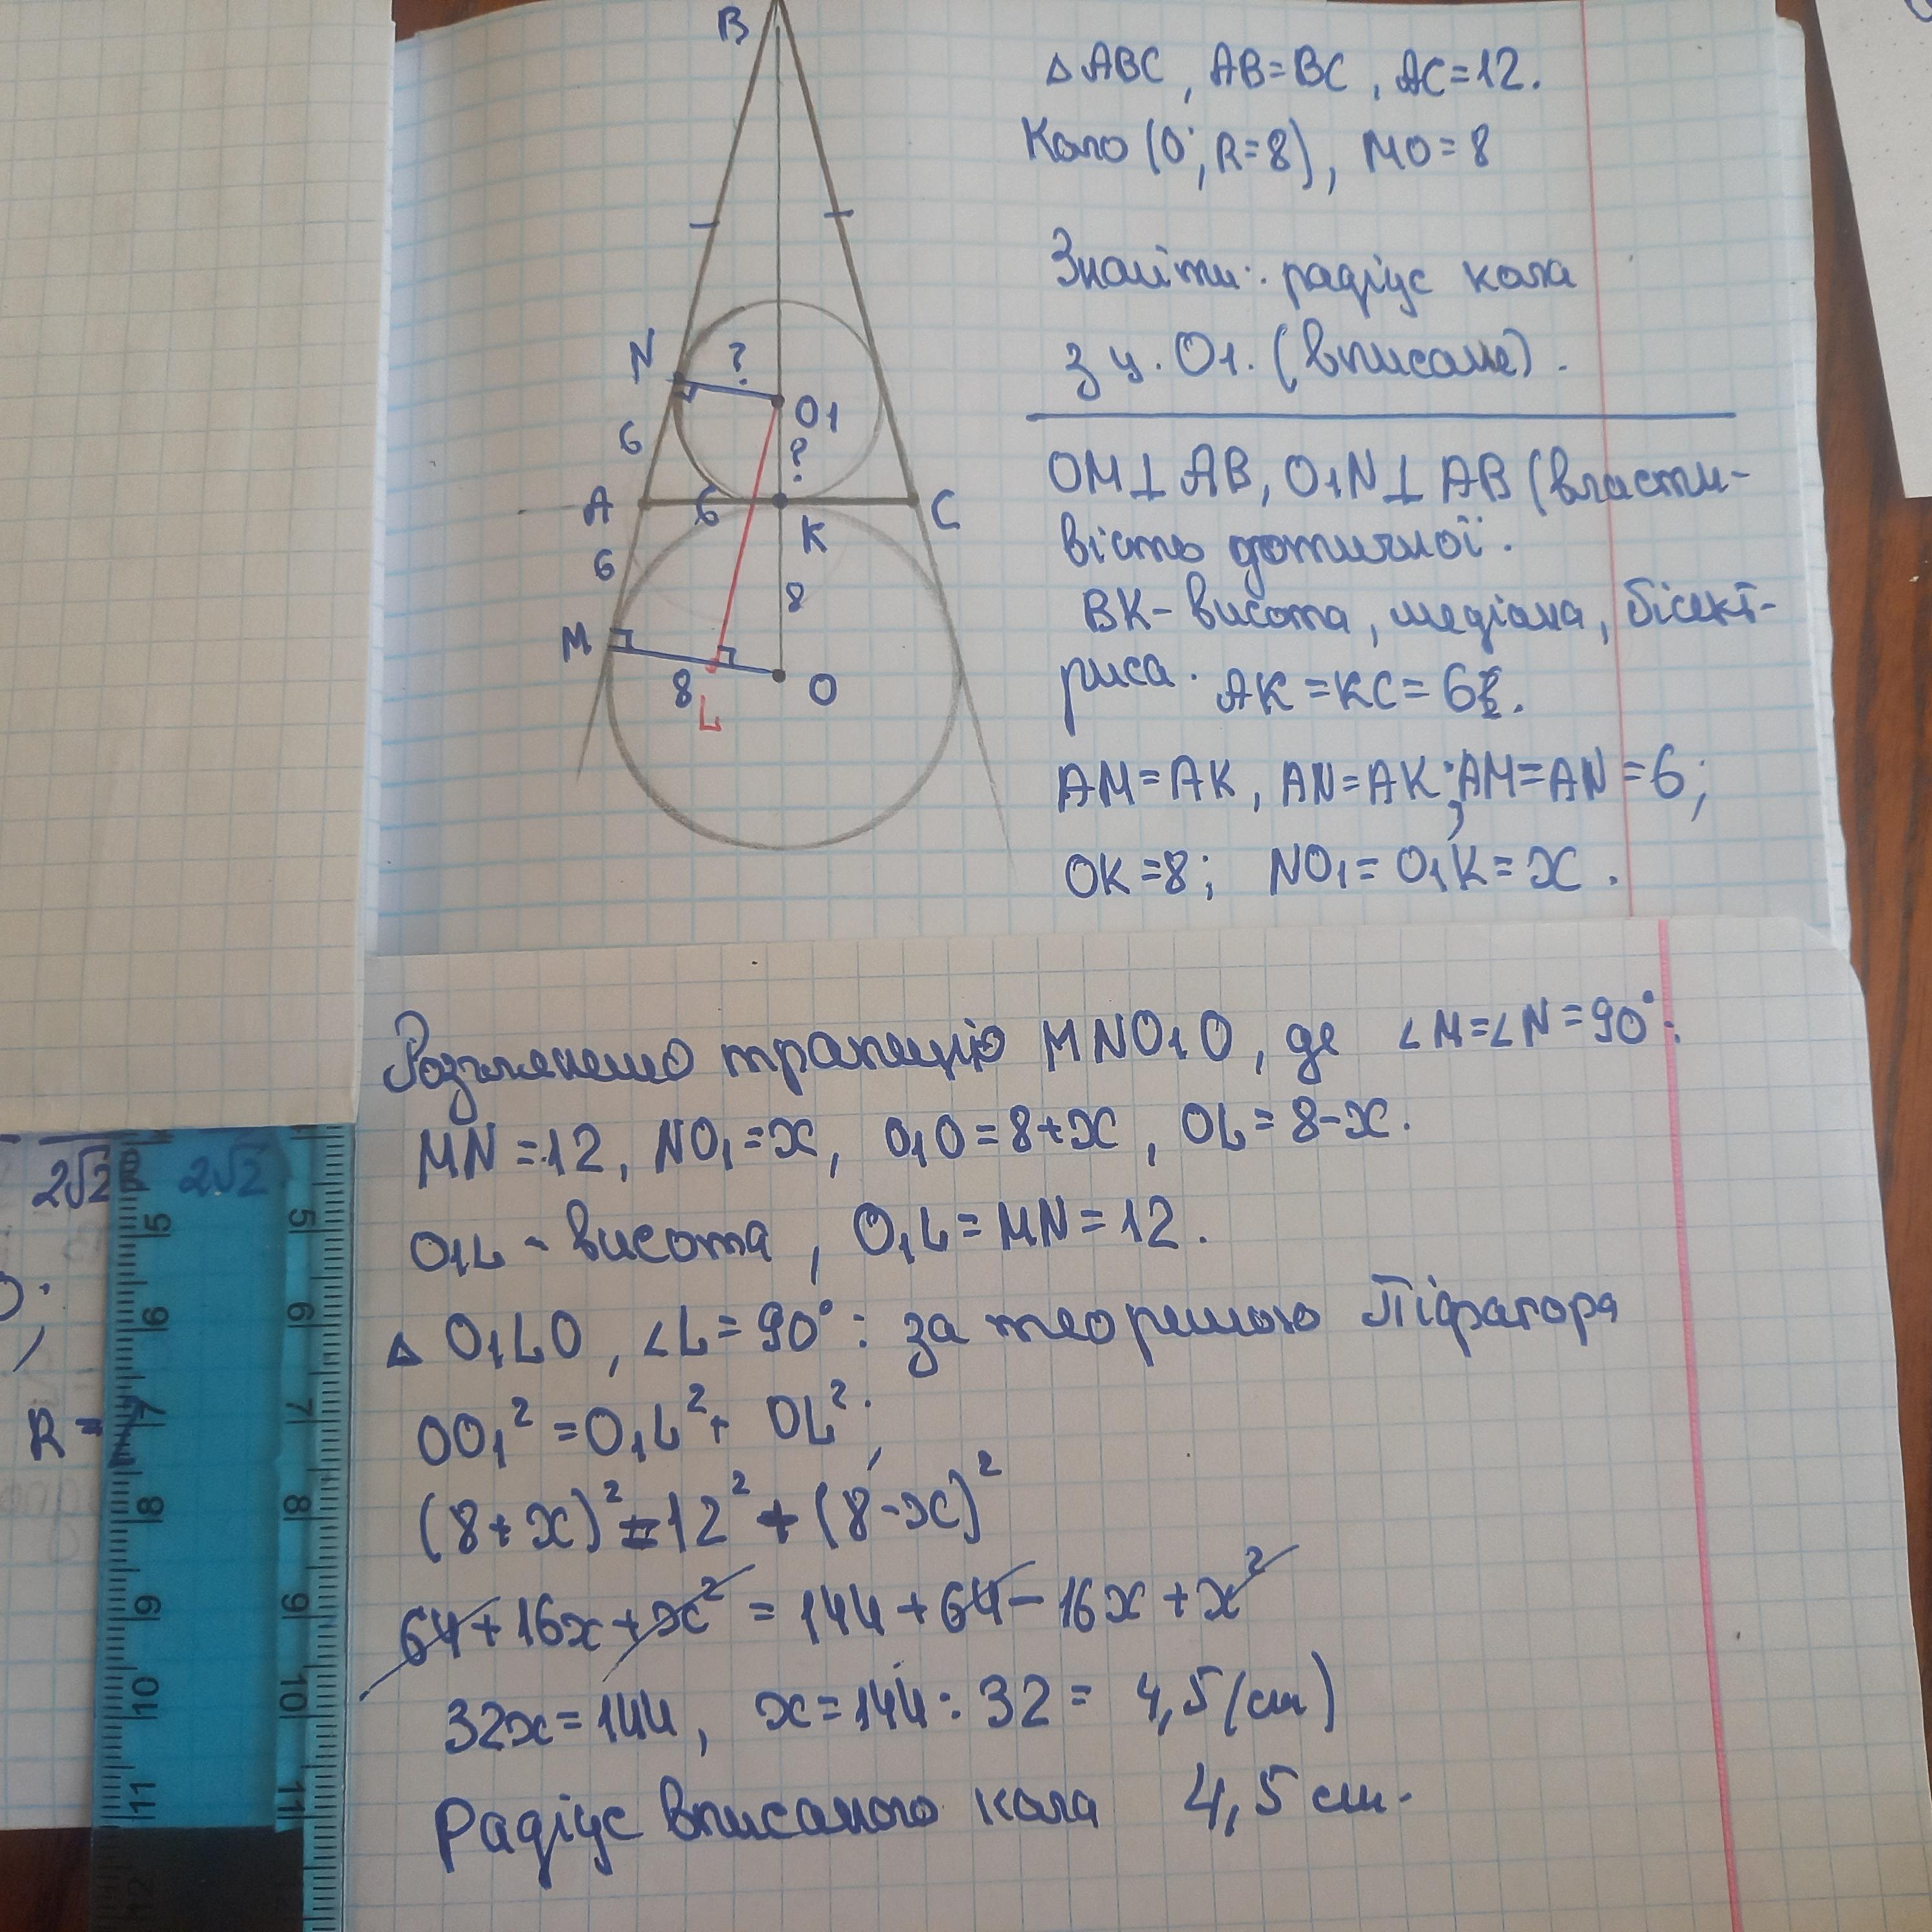 B
N
?
O1
6
?
A
6
K
C
6
8
M
8
O
L
Δ ABC, AB=BC, AC=12.
Коло (O; R=8), MO=8
Знайти: радіус кола
з ц. O1. (вписане).
OM⊥AB, O1N⊥AB (власти-
вість дотичної.
BK- висота, медіана, бісект-
риса. AK=KC=6.
AM=AK, AN=AK; AM=AN=6;
OK=8; NO₁=O₁K=x.
Розглянемо трапецію MNO1O, де ∠M=∠N=90°:
MN=12, NO₁=x, O₁O=8+x, OL=8-x.
O₁L - висота, O₁L=MN=12.
Δ O₁LO, ∠L=90°: за теоремою Піфагора
OO₁²=O₁L²+ OL²;
(8+x)²=12²+(8-x)²
64+16x+x²=144+64-16x+x²
32x=144, x=144:32= 4,5(см)
Радіус вписаного кола 4,5 см.
2√2
2√2
R=
5
6
7
8
9
10
11
12
5
6
7
8
9
10
11